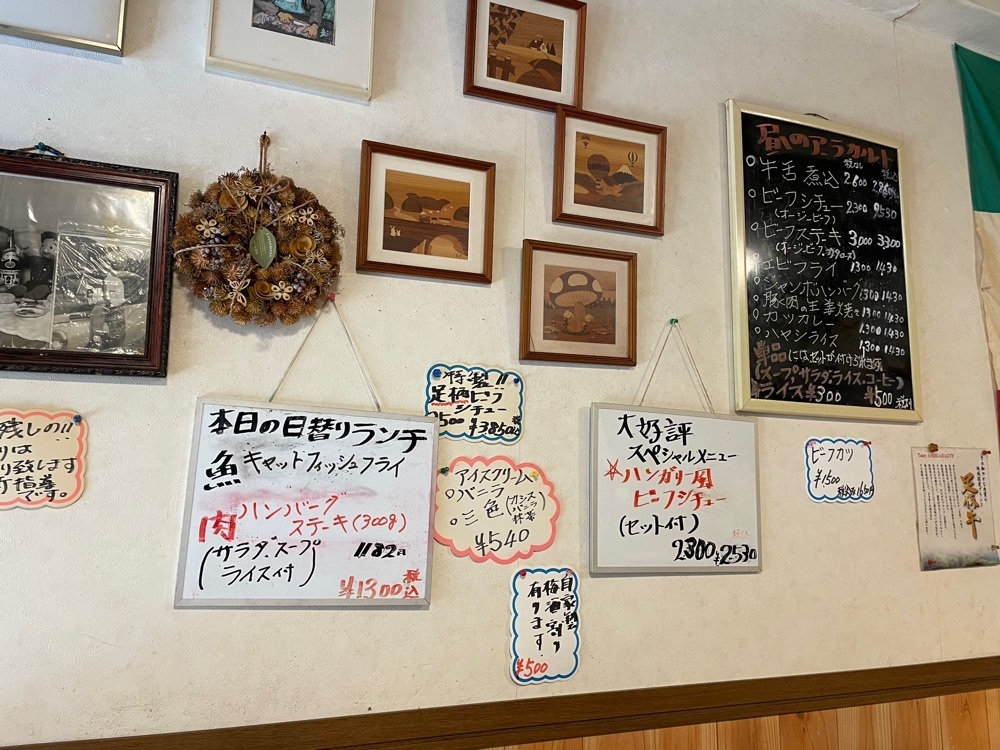 残しの!!
りは
り致します
です。
本日の日替りランチ
魚 キャットフィッシュフライ
肉 ハンバーグ
ステーキ(300g)
(サラダ、スープ
ライス付)
1182円
¥1300 税込
特製!!
足柄ビーフ
シチュー
3500 ¥3850
アイスクリーム
○バニラ
○三色(カシス
バニラ
抹茶)
¥540
自家製
梅酒
有ります
¥500
大好評
スペシャルメニュー
☆ハンガリー風
ビーフシチュー
(セット付)
2300 ¥2530
昼のアラカルト
税なし 税込
○牛舌煮込 2600 2860
○ビーフシチュー 2300 2530
(オージービーフ)
○ビーフステキ 3000 3300
○エビフライ 1300 1430
○ジャンボハンバーグ 1300 1430
○豚肉の生姜焼き 1300 1430
○カツカレー 1300 1430
○ハヤシライス 1300 1430
単品にはセットが付けられます
(スープ、サラダ、ライス、コーヒー)
¥500
ライス ¥300
ビーフカツ
¥1500
税込 1650